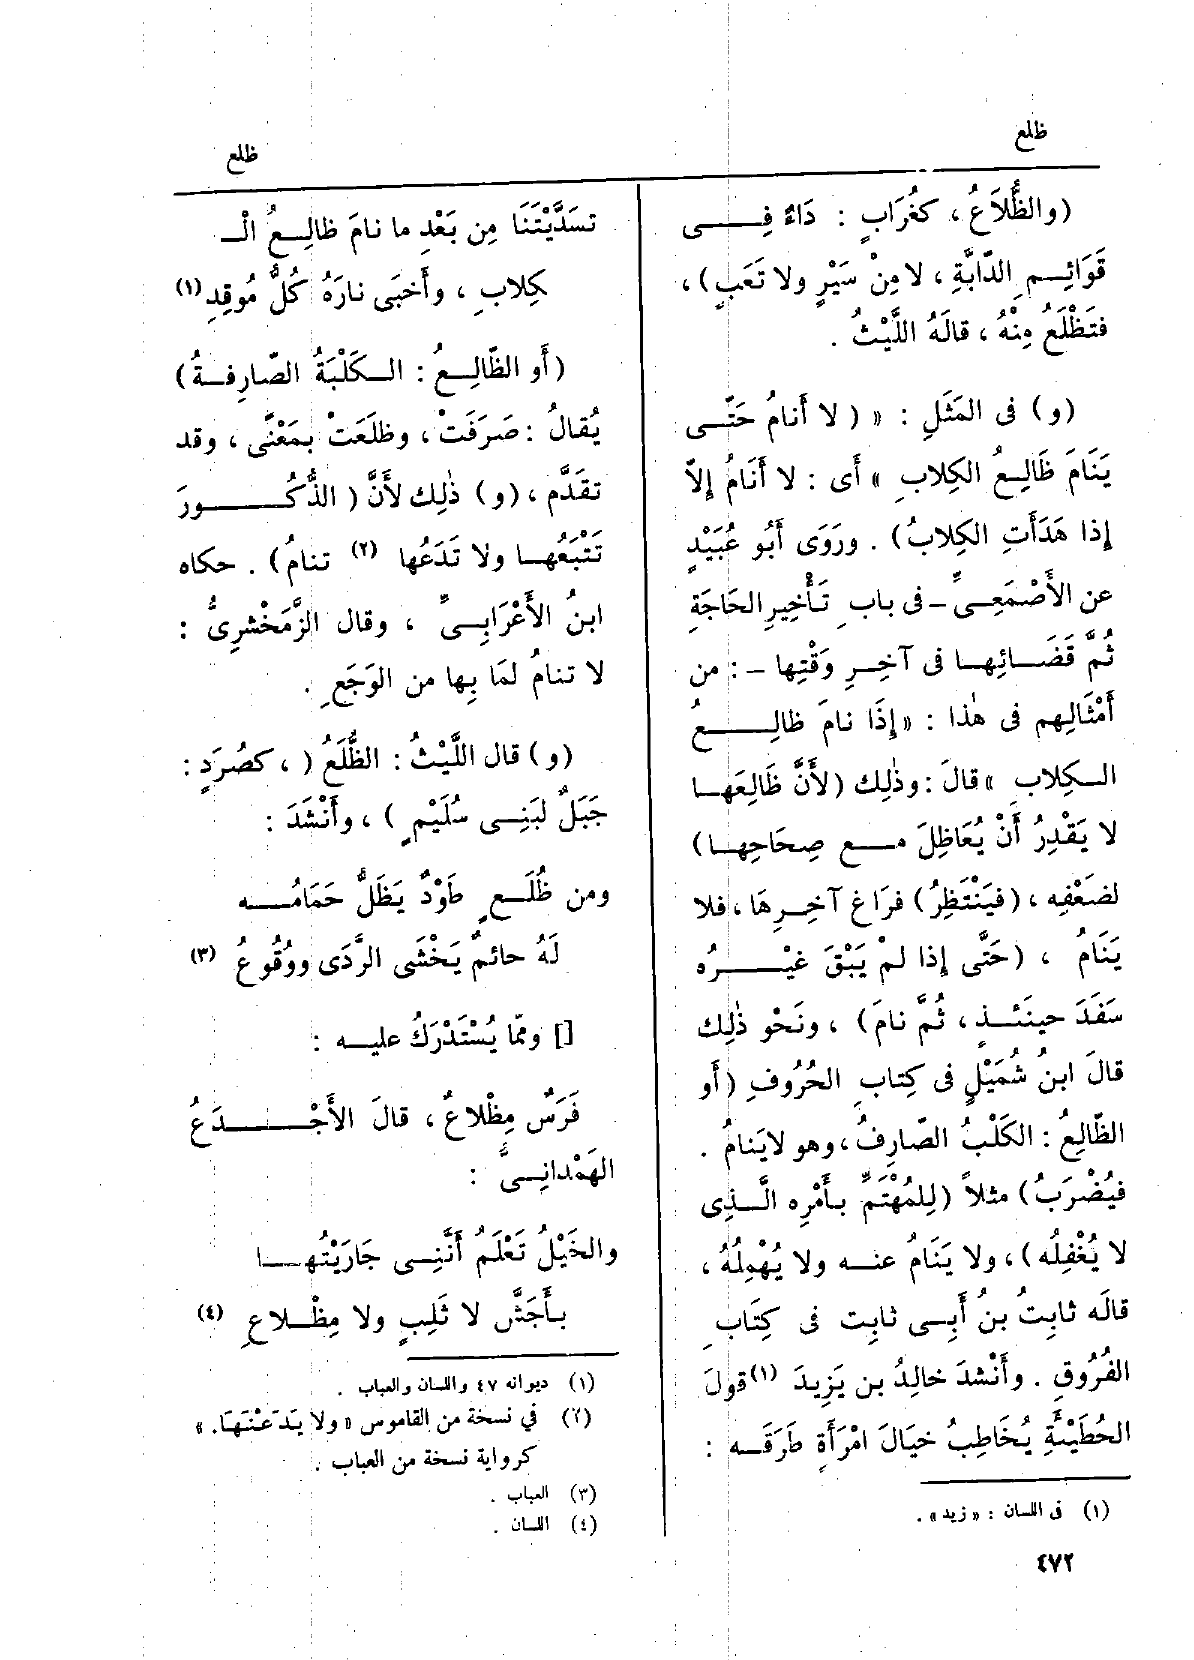 ظلع
(والظُّلاَعُ ، كغُرَابٍ : دَاءٌ فِــى
قَوَائِـمِ الدّابَّةِ ، لا مِنْ سَيْرٍ ولا تَعَبٍ) ،
فتَظْلَعُ مِنْهُ ، قالَهُ اللَّيْثُ .
(و) فى المَثَلِ : « ( لا أَنامُ حَتّــى
يَنَامَ ظَالِعُ الكِلابِ » أى : لا أَنَامُ إلاّ
إذا هَدَأَتِ الكِلابُ) . ورَوَى أَبُو عُبَيْدٍ
عن الأَصْمَعِــىِّ – فى بابِ تَأْخِيرِ الحَاجَةِ
ثُمَّ قَضَــائِهـا فى آخِـرِ وَقْتِها – : من
أَمْثَالِهم فى هٰذا : « إِذَا نامَ ظالِــــعُ
الـكِلابِ » قالَ : وذٰلِك (لأَنَّ ظَالِعَهـا
لا يَقْدِرُ أَنْ يُعَاظِلَ مــع صِحَاحِهـا)
لضَعْفِه ، (فيَنْتَظِرُ) فرَاغَ آخِـرِهَا ، فلا
يَنَامُ ، (حَتَّى إذا لمْ يَبْقَ غيْــــرُه
سَفَدَ حينَئــذٍ ، ثُمَّ نامَ) ، ونَحْو ذٰلِك
قالَ ابنُ شُمَيْلٍ فى كِتابِ الحُرُوفِ (أَو
الظّالِعُ : الكَلْبُ الصّارِفُ ، وهو لايَنامُ .
فيُضْرَبُ) مثلاً (لِلمُهْتَمِّ بـأَمْرِه الَّـذِى
لا يُغْفِلُه) ، ولا يَنَامُ عنــه ولا يُهْمِلُهُ ،
قالَه ثابِتُ بنُ أَبِــى ثابِت فى كِتَابِ
الفُرُوقِ . وأَنْشدَ خالِدُ بن يَزِيدَ (١) قولَ
الحُطَيْئَةِ يُخَاطِبُ خيَالَ امْرَأَةٍ طَرَقَــه :
(١) فى اللسان : « زيد » .
٤٧٢
ظلع
تسَدَّيْتَنَا مِن بَعْدِ ما نامَ ظالِــعُ الْــ
كِلابِ ، وأَخبَى نارَهُ كُلُّ مُوقِدِ (١)
(أَو الظّالِــعُ : الــكَلْبَةُ الصّارِفــةُ)
يُقالُ : صَرَفَتْ ، وظلَعَتْ بمَعْنًى ، وقد
تقَدَّم ، (و) ذٰلِك لأَنَّ ( الذُّكُـــــورَ
تَتْبَعُهــا ولا تَدَعُها (٢) تنامُ) . حكاه
ابنُ الأَعْرَابِــىِّ ، وقال الزَّمَخْشرِىُّ :
لا تنامُ لمَا بِها من الوَجَعِ .
(و) قال اللَّيْثُ : الظُّلَعُ ( ، كصُرَدٍ :
جَبَلٌ لبَنِــى سُلَيْمٍ ) ، وأَنْشَدَ :
ومن ظُلَــعٍ طَوْدٌ يَظَلُّ حَمَامُــه
لَهُ حائمٌ يَخْشَى الرَّدَى ووُقُوعُ (٣)
[] وممّا يُسْتَدْرَكُ عليــه :
فَرَسٌ مِظْلاعٌ ، قالَ الأَجْــــدَعُ
الهَمْدانِــىُّ :
والخَيْلُ تَعْلَمُ أَنَّنِــى جَارَيْتُهــا
بـأَجَشَّ لا ثَلِبٍ ولا مِظْــلاعِ (٤)
(١) ديوانه ٤٧ واللسان والعباب .
(٢) في نسخة من القاموس « ولا يَدَعْنَهَا. »
كرواية نسخة من العباب .
(٣) العباب .
(٤) اللسان .